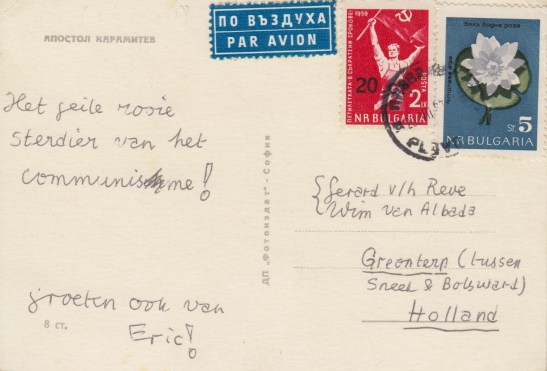 АПОСТОЛ КАРАМИТЕВ
ПО ВЪЗДУХА
PAR AVION
1959
20
2 ЛВ
ПОЩА
NR BULGARIA
Бяла водна роза
St. 5
NR BULGARIA
PLE
Het geile rosie
Sterdier van het
communisme!
groeten ook van
Eric!
8 ст.
ДП „Фотоиздат" - София
{Gerard v/h Reve
Wim van Albada
Greonterp (tussen
Sneek & Bolsward)
Holland